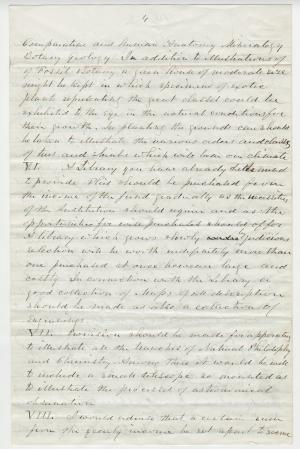 4
Comparative and Human Anatomy Mineralogy
Botany geology. In addition to illustrations of
of Fossil Botany a green house of moderate size
might be kept in which specimens of exotic
plants representing the great classes could be
exhibited to the eye in the natural conditions for
their growth. In planting the grounds care should
be taken to illustrate the various orders and classes
of trees and shrubs which will bear our climate
VI. A Library you have already determined
to provide. This should be purchased from
the income of the fund gradually as the necessities
of the Institution should require and as the
opportunities for wise purchases should offer
A library which grows slowly under judicious
selection will be worth infinitely more than
one purchased at once however large and
costly. In connection with the Library a
good collection of Maps of all description
should be made as also a collection of
engravings
VII. Provision should be made for apparatus
to illustrate all the branches of Natural Philosophy
and Chemistry. Among these it would be well
to include a small telescope so mounted as
to illustrate the processes of astronomical
observation
VIII. I would advise that a certain sum
from the yearly income be set apart to secure